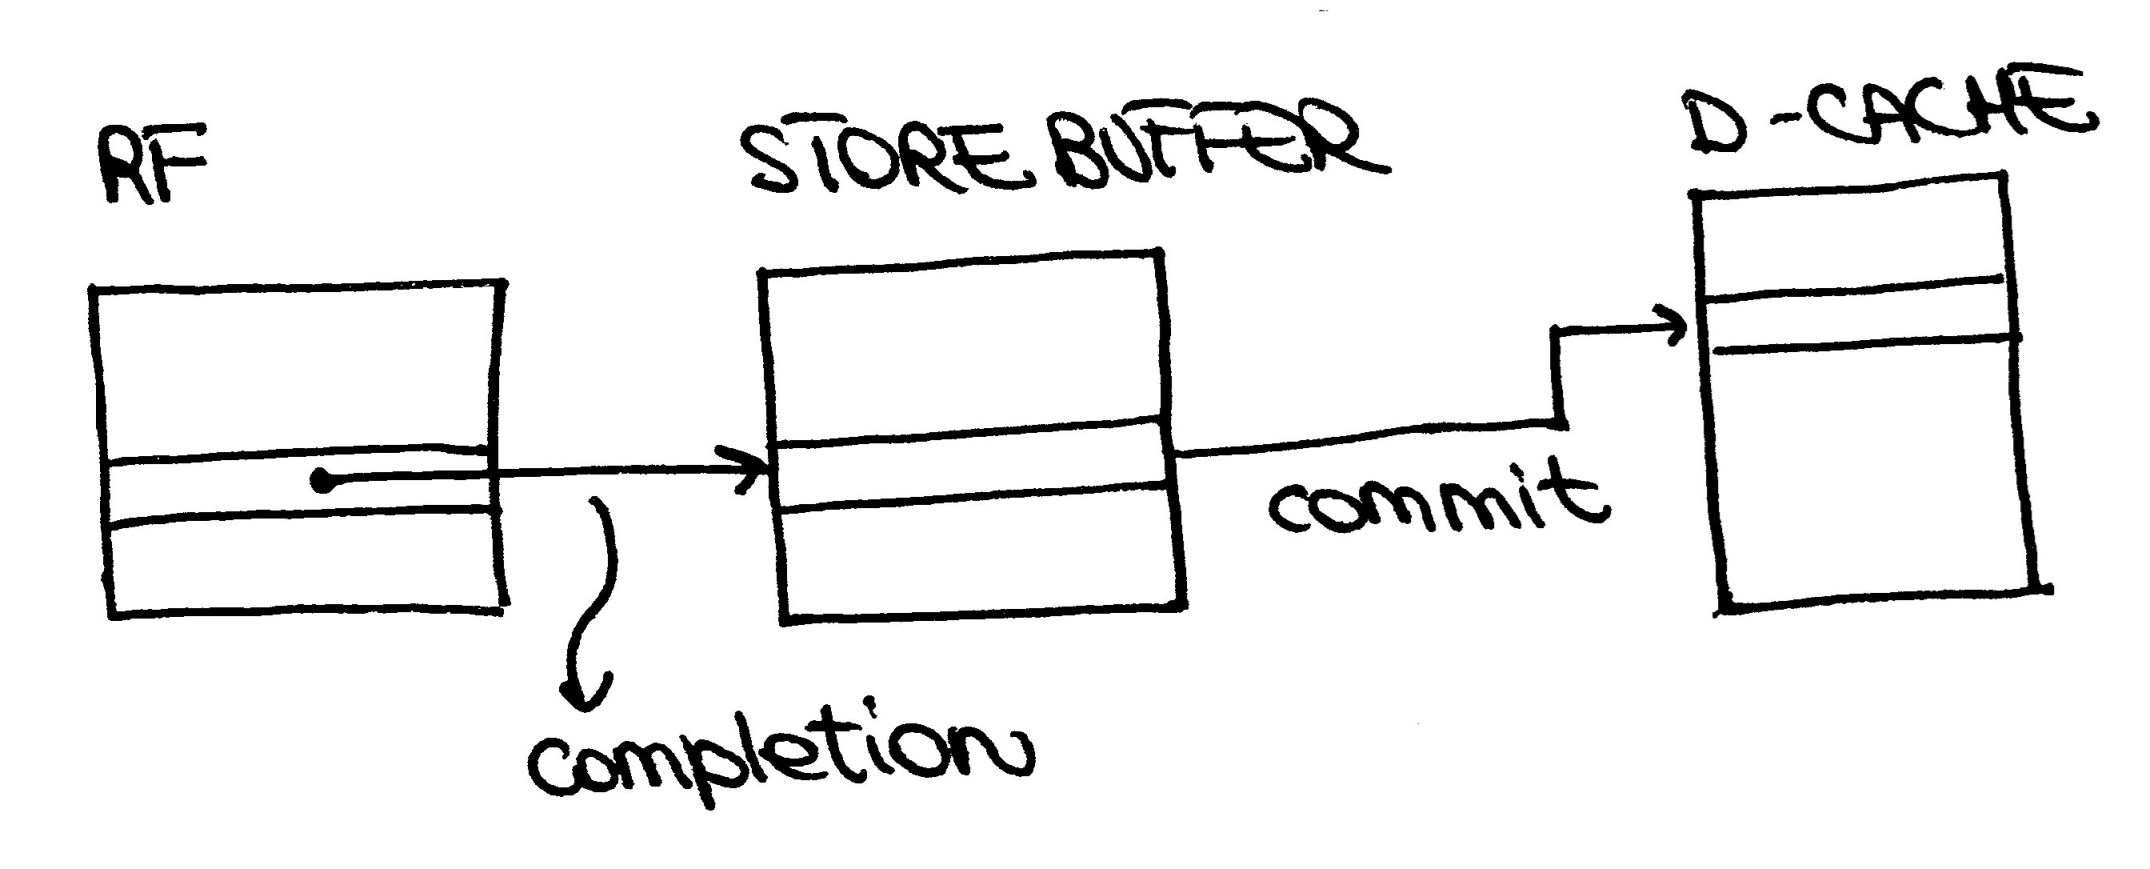 RF
STORE BUFFER
D-CACHE
commit
completion